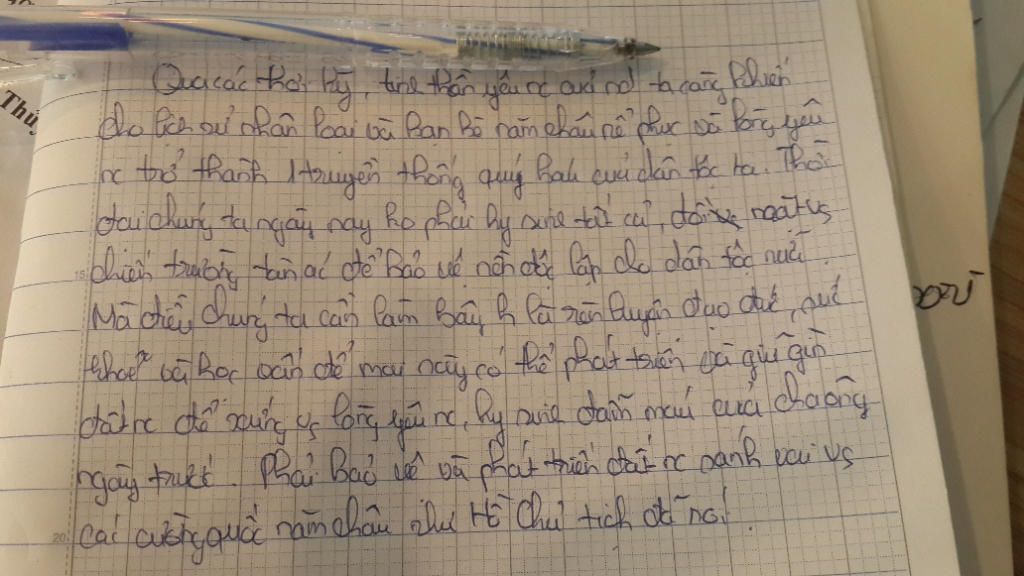 Thủ
Qua các thời kỳ, tinh thần yêu nc của nd ta càng khiến
cho lịch sử nhân loại và bạn bè năm châu nể phục và lòng yêu
nc trở thành truyền thống quý báu của dân tộc ta. Thời
đại chúng ta ngày nay ko phải hy sinh tất cả, đối mặt vs
chiến trường tàn ác để bảo vệ nền độc lập cho dân tộc nữa.
Mà điều chúng ta cần làm bây h là rèn luyện đạo đức, sức
khoẻ và học vấn để mai này có thể phát triển và giữ gìn
đất nc để xứng vs lòng yêu nc, hy sinh đẫm máu của cha ông
ngày trước. Phải bảo vệ và phát triển đất nc sánh vai vs
các cường quốc năm châu như Hồ Chủ tịch đã nói.
15
20